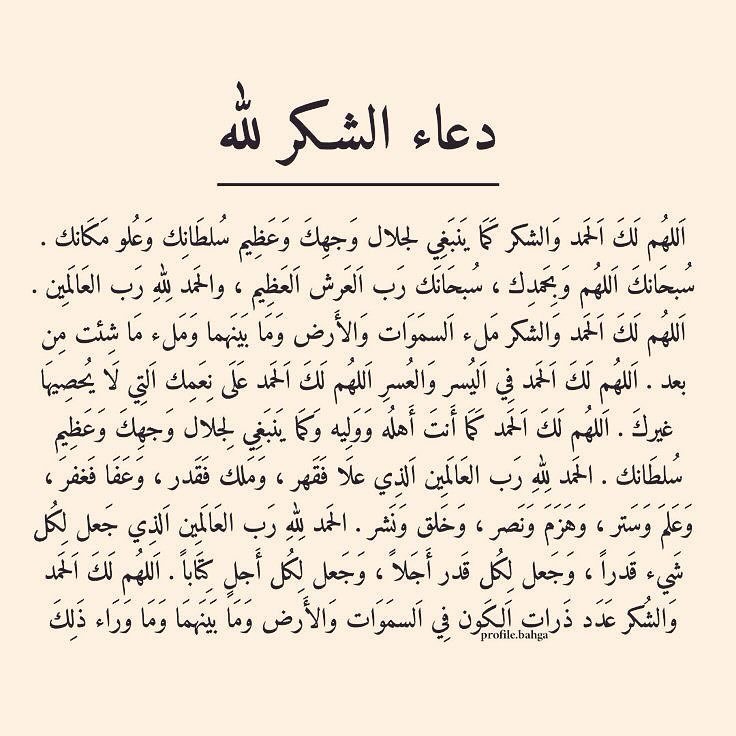 دعاء الشكر لله
اَللهُم لَكَ اَلحَمد وَالشكر كَمَا يَنبَغِي لجلال وَجهِكَ وَعَظِيم سُلطَانِك وَعُلو مَكَانك .
سُبحَانَكَ اَللهُم وَبِحَمدِك ، سُبحَانَك رَب اَلعَرش اَلعَظِيم ، والحَمد لِلهِ رَب العَالَمِين .
اَللهُم لَكَ اَلحَمد وَالشكر مَلء اَلسمَوَات وَالأَرض وَمَا بَينَهما وَمَلء مَا شِئت مِن
بعد . اَللهُم لَكَ اَلحَمد فِي اَليُسر وَالعُسرِ اَللهُم لَكَ اَلحَمد علَى نِعَمِك اَلتِي لَا يُحصِيهَا
غيركَ . اَللهُم لَكَ اَلحَمد كَمَا أَنتَ أَهلُه وَوَلِيه وَكَمَا يَنبَغِي لِجلال وَجهِكَ وَعَظِيم
سُلطَانك . الحَمد لِلهِ رَب العَالَمِين اَلذِي علَا فَقَهر ، وَمَلك فَقَدر ، وَعَفَا فَغفرَ ،
وَعَلم وَسَتر ، وَهَزَمَ وَنَصر ، وَخَلق وَنَشر . الحَمد لِلهِ رَب العَالَمِين اَلذِي جَعل لِكُل
شَيء قَدراً ، وَجَعل لِكُل قَدر أَجَلاً ، وَجَعل لِكُل أَجلٍ كِتَاباً . اَللهُم لَكَ اَلحَمد
وَالشُكر عَدَد ذَرات اَلكَون فِي اَلسمَوَات وَالأَرض وَمَا بَينَهمَا وَمَا وَرَاء ذَلِكَ
profile.bahga